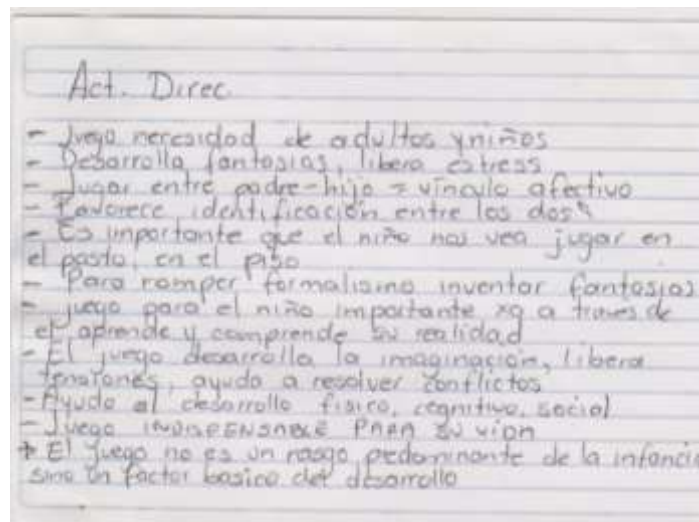 Act. Direc.
- Juego necesidad de adultos y niños
- Desarrolla fantasias, libera estress
- Jugar entre padre-hijo = vinculo afectivo
- Favorece identificación entre los dos
- Es importante que el niño nos vea jugar en
el pasto, en el piso
- Para romper formalismo inventar fantasias
- juego para el niño importante xq a traves de
el aprende y comprende su realidad
- El juego desarrolla la imaginación, libera
tensiones, ayuda a resolver conflictos
- Ayuda al desarrollo fisico, cognitivo, social
- Juego INDISPENSABLE PARA SU VIDA
+ El juego no es un rasgo pedominante de la infancia
sino un factor basico del desarrollo